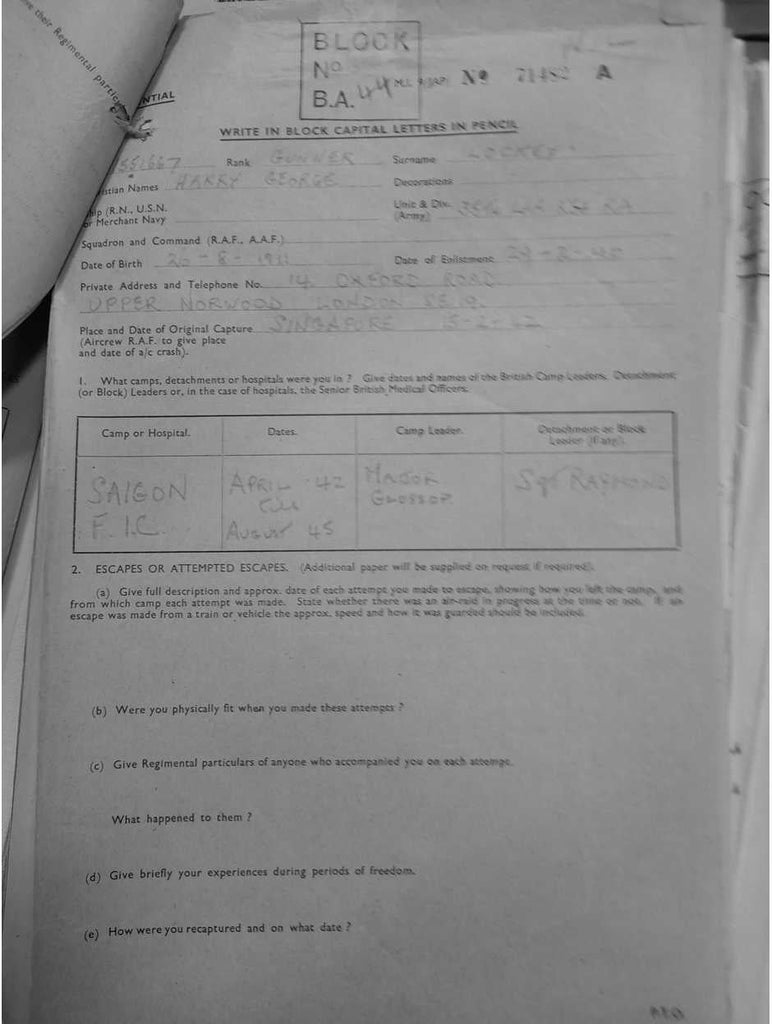 re their Regimental partic
NTIAL
BLOCK
No
B.A. 44
No 71482 A
WRITE IN BLOCK CAPITAL LETTERS IN PENCIL
551667 Rank GUNNER Surname
stian Names HARRY GEORGE Decorations
hip (R.N., U.S.N. Unit & Div.
or Merchant Navy (Army)
Squadron and Command (R.A.F., A.A.F.)
Date of Birth 20-8-1911 Date of Enlistment
Private Address and Telephone No. 14. OXFORD ROAD
UPPER NORWOOD LONDON SE19.
Place and Date of Original Capture SINGAPORE 15-2-42
(Aircrew R.A.F. to give place
and date of a/c crash).
1. What camps, detachments or hospitals were you in ? Give dates and names of the British Camp Leaders, Detachment
(or Block) Leaders or, in the case of hospitals, the Senior British Medical Officers.
Camp or Hospital. Dates. Camp Leader. Detachment or Block
Leader (if any).
SAIGON APRIL 42 MAJOR Sgt RAYMOND
F.I.C. till GLOSSOP
AUGUST 45
2. ESCAPES OR ATTEMPTED ESCAPES. (Additional paper will be supplied on request if required).
(a) Give full description and approx. date of each attempt you made to escape, showing how you left the camp, and
from which camp each attempt was made. State whether there was an air-raid in progress at the time or not. If an
escape was made from a train or vehicle the approx. speed and how it was guarded should be included.
(b) Were you physically fit when you made these attempts ?
(c) Give Regimental particulars of anyone who accompanied you on each attempt.
What happened to them ?
(d) Give briefly your experiences during periods of freedom.
(e) How were you recaptured and on what date ?